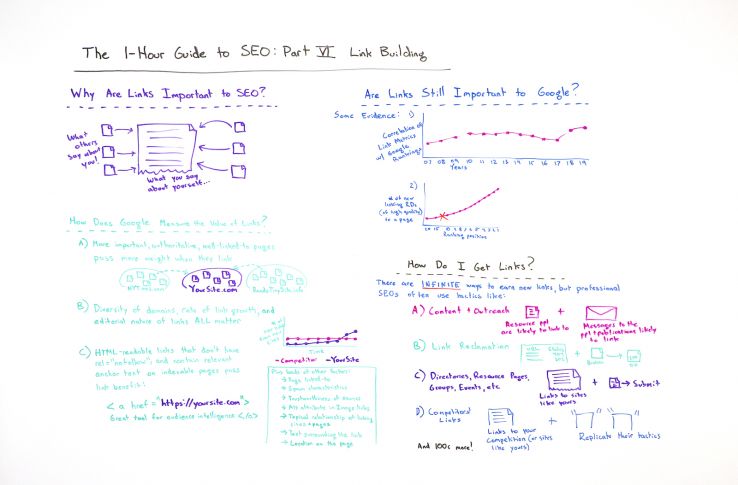 The 1-Hour Guide to SEO: Part VI Link Building
Why Are Links Important to SEO?
What
others
say about
you!
What you say
about yourself...
Are Links Still Important to Google?
Some Evidence: 1)
Correlation of
Link Metrics
w/ Google
Rankings
07 08 09 10 11 12 13 14 15 16 17 18 19
Years
2)
# of new
linking RDs
(of high quality)
to a page
Ranking position
How Does Google Measure the Value of Links?
A) More important, authoritative, well-linked-to pages
pass more weight when they link
NYTimes.com
YourSite.com
B) Diversity of domains, rate of link growth, and
editorial nature of links ALL matter
Time
Competitor YourSite
C) HTML-readable links that don't have
rel="nofollow" and contain relevant
anchor text on indexable pages pass
link benefit!
< a href="https://yoursite.com">
Great tool for audience intelligence </a>
Plus loads of other factors:
→ Page linked-to
→ Spam characteristics
→ Trustworthiness of sources
→ Alt attribute in image links
→ Topical relationship of linking
sites + pages
→ Text surrounding the link
→ Location on the page
How Do I Get Links?
There are INFINITE ways to earn new links, but professional
SEOs often use tactics like:
A) Content + Outreach
+
Resource ppl
are likely to link to
Messages to the
ppl + publications likely
to link
B) Link Reclamation
+
C) Directories, Resource Pages,
Groups, Events, etc
Links to sites
like yours
+ → Submit
D) Competitors'
Links
Links to your
Competition (or sites
like yours)
+
Replicate their tactics
And 100s more!